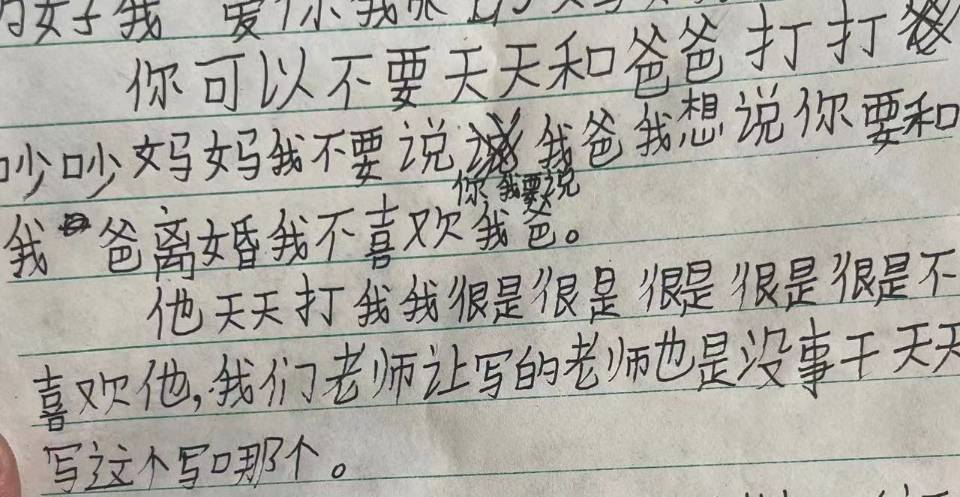 你可以不要天天和爸爸打打
吵吵妈妈我不要说我爸我想说你要和
你我要说
我爸离婚我不喜欢我爸。
他天天打我我很是很是很是很是很是不
喜欢他,我们老师让写的老师也是没事干天天
写这个写哪个。